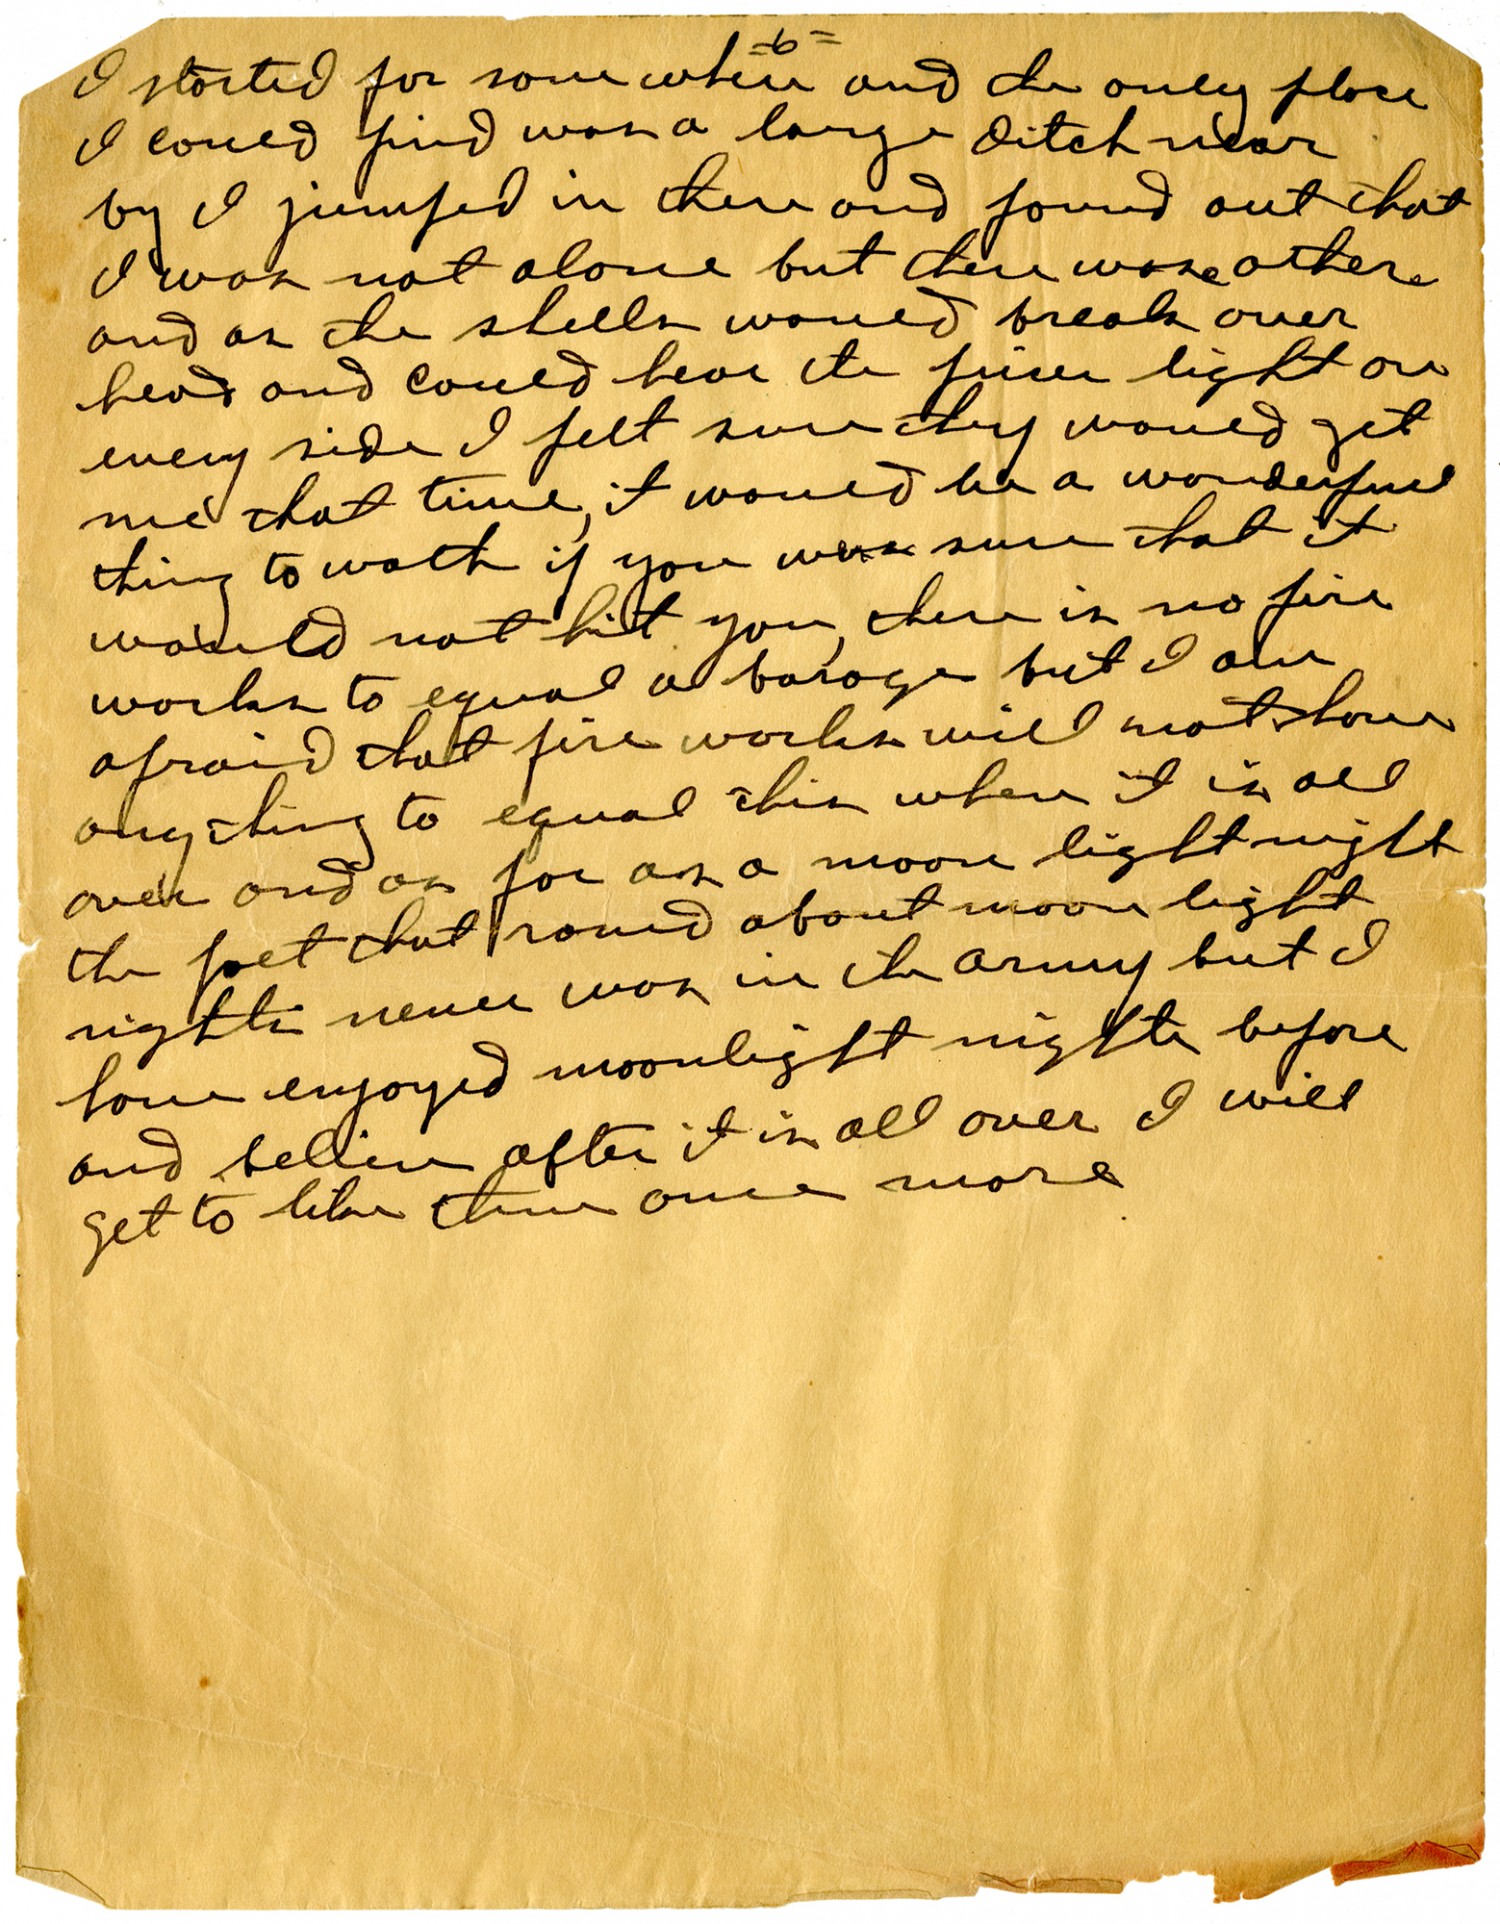 =6=
I started for some where and the only place
I could find was a large ditch near
by I jumped in there and found out that
I was not alone but there was others
and as the shells would break over
head and could hear the light on
every side I felt sure they would get
me that time, it would be a wonderful
thing to watch if you was sure that it
would not hit you, there is no fire
works to equal a barage but I am
afraid that fire works will not have
anything to equal this when it is all
over and as for as a moon light night
the poet that raved about moon light
nights never was in the army but I
have enjoyed moonlight nights before
and belive after it is all over I will
get to like them once more